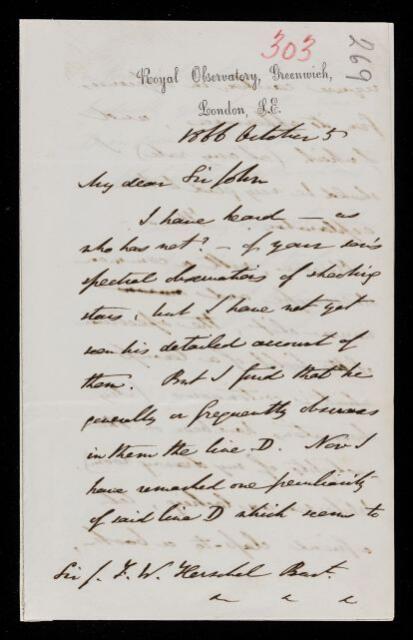 303
269
Royal Observatory, Greenwich,
London, S.E.
1866 October 5
My dear Sir John
I have heard — as
who has not? — of your son's
spectral observations of shooting
stars, but I have not yet
seen his detailed account of
them. But I find that he
generally or frequently observes
in them the line D. Now I
have remarked one peculiarity
of said line D which seems to
Sir J. F. W. Herschel Bart.